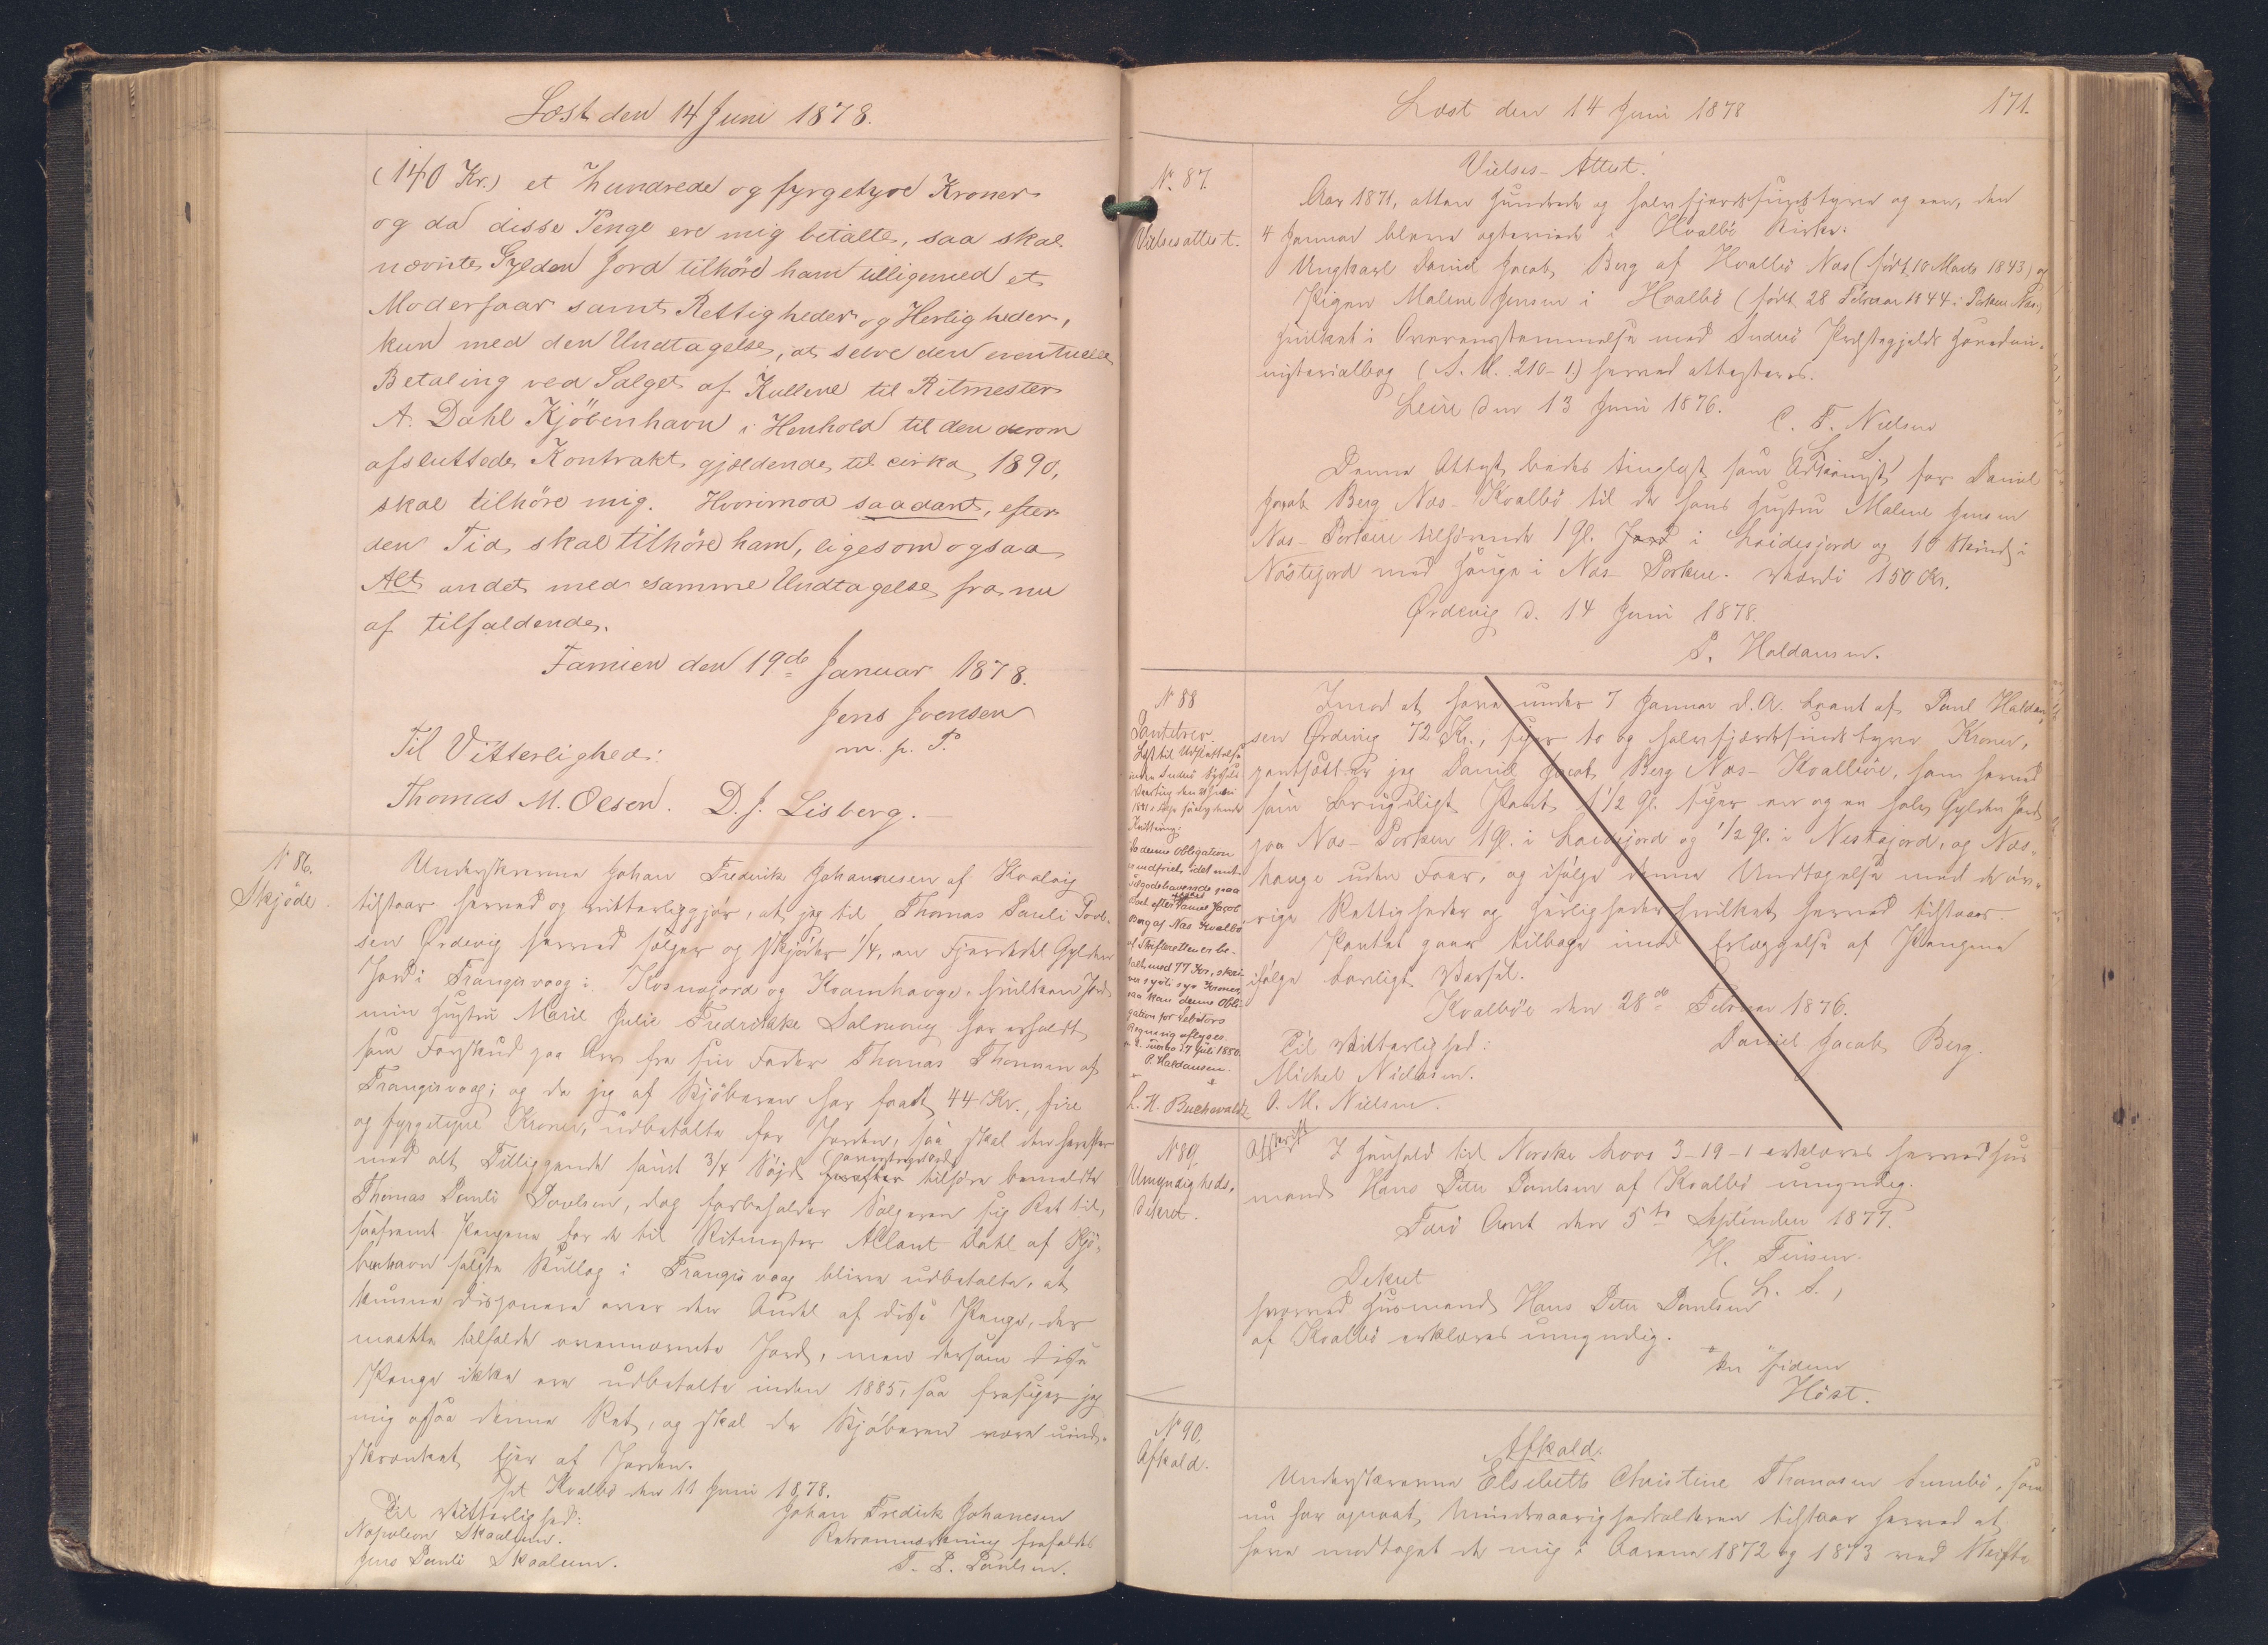 Læst den 14 Juni 1878.
(140 Kr.) et hundrede og fyrgetyve Kroner
og da disse Penge ere mig betalte, saa skal
nævnte Gylden Jord tilhöre ham tilligemed et
Moderfaar samt Rettigheder og Herligheder,
kun med den Undtagelse, at selve den eventuelle
Betaling ved Salget af Kullene til Ritmester
A. Dahl Kjöbenhavn i Henhold til den derom
afsluttede Kontrakt gjældende til cirka 1890,
skal tilhöre mig. Hvorimod saadant, efter
den Tid skal tilhöre ham, ligesom ogsaa
Alt andet med samme Undtagelse fra nu
af tilfaldende.
Famien den 19de Januar 1878.
Jens Joensen
m. p. P.
Til Vitterlighed:
Thomas M. Olsen. D. J. Lisberg.
N 86.
Skjöde.
Underskrevne Johan Fredrik Johannesen af Hvalvig
tilstaar herved og vitterliggjør, at jeg til Thomas Pauli Povl-
sen Ördevig herved sælger og skjøder 1/4, en Fjerdedel Gylden
Jord i Trangisvaag i Kosnajord og Kvamhauge, hvilken Jord
min Hustru Marie Julie Fredrikke Dalmony har erholdt
som Forskud paa Arv fra sin Fader Thomas Thomsen af
Trangisvaag; og da jeg af Kjöberen har faaet 44 Kr., fire
og fyrgetyve Kroner, udbetalte for Jorden, saa skal den herefter
med alt Tilliggende samt 3/4 Söjd herefter tilhöre bemeldte
Thomas Pauli Poulsen, dog forbeholder Sælgeren sig Ret til,
saafremt Pengene for de til Ritmester Allant Dahl af Kjö-
benhavn solgte Kullag i Trangisvaag blive udbetalte, at
kunne disponere over den Andel af disse Penge, der
maatte tilfalde ovennævnte Jord, men dersom disse
Penge ikke ere udbetalte inden 1885, saa frasiger jeg
mig ogsaa denne Ret, og skal da Kjöberen være uind-
skrænket Ejer af Jorden.
Pt Kvalbö den 11 Juni 1878.
Til Vitterlighed: Johan Fredrik Johanesen
Napoleon Skaalum. Retranmærkning frafaldes
Jens Pauli Skaalum. T. P. Poulsen.
Læst den 14 Juni 1878
171.
N. 87.
Vielsesattest.
Vielses-Attest.
Aar 1871, atten Hundrede og halvfjerdsindstyve og een, den
4 Januar bleve ægteviede i Hvalbö Kirke:
Ungkarl Daniel Jacob Berg af Hvalbö Næs (født 10 Marts 1843) og
Pigen Malene Jensen i Hvalbö (født 28 Februar 1844 i Porkere Næs),
hvilket i Overensstemmelse med Suderö Præstegjelds Hovedmi-
nisterialbog (S. M. 210-1) herved attesteres.
Leire den 13 Juni 1876.
C. F. Nielsen
L S
Denne Attest bedes tinglæst som Adkomst for Daniel
Jacob Berg Næs-Kvalbö til de hans Hustru Malene Jensen
Næs-Porkere tilhörende 1 Gl. Jord i Laidesjord og 10 Skind i
Nöstejord med Hauge i Næs-Porkere. Værdi 150 Kr.
Ørdevig d. 14 Juni 1878.
P. Haldansen.
N 88
Pantebrev.
Læst til Udslettelse
inden Suderö Syssels
Forårsting den
1881 ifølge saalydende
Kvittering:
Da denne Obligation
er indfriet, idet mit
tilgodehavende paa
Boet efter Daniel Jacob
Berg af Næs Kvalbö
af Skifteretten er be-
talt med 77 Kr., skri-
ver syvti syv Kroner,
saa kan denne Obli-
gation for Debitors
Regning aflyses.
17 Juli 1880.
P. Haldansen.
L. H. Buchwaldt
Imod at have under 7 Januar d.A. laant af Poul Haldan-
sen Ørdevig 72 Kr., siger to og halvfjerdsindstyve Kroner,
pantsætter jeg Daniel Jacob Berg Næs-Kvalböe, som herved
som brugeligt Pant 1 1/2 Gl. siger en og en halv Gylden Jord
paa Næs-Porkere 1 Gl. i Laidesjord og 1/2 Gl. i Nestajord, og Næs-
hauge uden Faar, og ifølge denne Undtagelse med de öv-
rige Rettigheder og Herligheder hvilket herved tilstaaes.
Pantet gaar tilbage imod Erlæggelse af Pengene
ifølge lovligt Varsel.
Kvalböe den 28de Februar 1876.
Til Vitterlighed: Daniel Jacob Berg.
Michel Niclasen.
O. M. Nielsen.
N 89.
Umyndigheds-
Dekret.
Afskrift I Henhold til Norske Lovs 3-19-1 erklæres herved Hus-
mand Hans Peter Poulsen af Kvalbö umyndig.
Færö Amt den 5te September 1877.
H. Finsen.
(L. S.)
Dekret
hvorved Husmand Hans Peter Poulsen
af Kvalbö erklæres umyndig.
in fidem
Höst.
N 90.
Afkald.
Afkald.
Underskrevne Elsebeth Christine Thomasen Sumbö, som
nu har opnaaet Mindreaarighedsalderen tilstaar herved at
have modtaget de mig i Aarene 1872 og 1873 ved Skifte